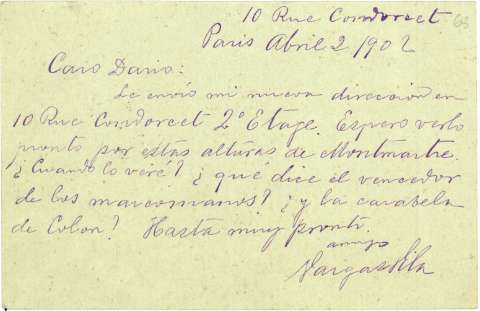 10 Rue Condorcet
63
Paris Abril 2 1902
Caro Dario:
Le envío mi nueva dirección en
10 Rue Condorcet 2º Etage. Espero verlo
pronto por estas alturas de Montmartre.
¿Cuando lo veré? ¿qué dice el vencedor
de los marcomanos? ¿y la carabela
de Colon? Hasta muy pronto.
amigo
Vargas Vila